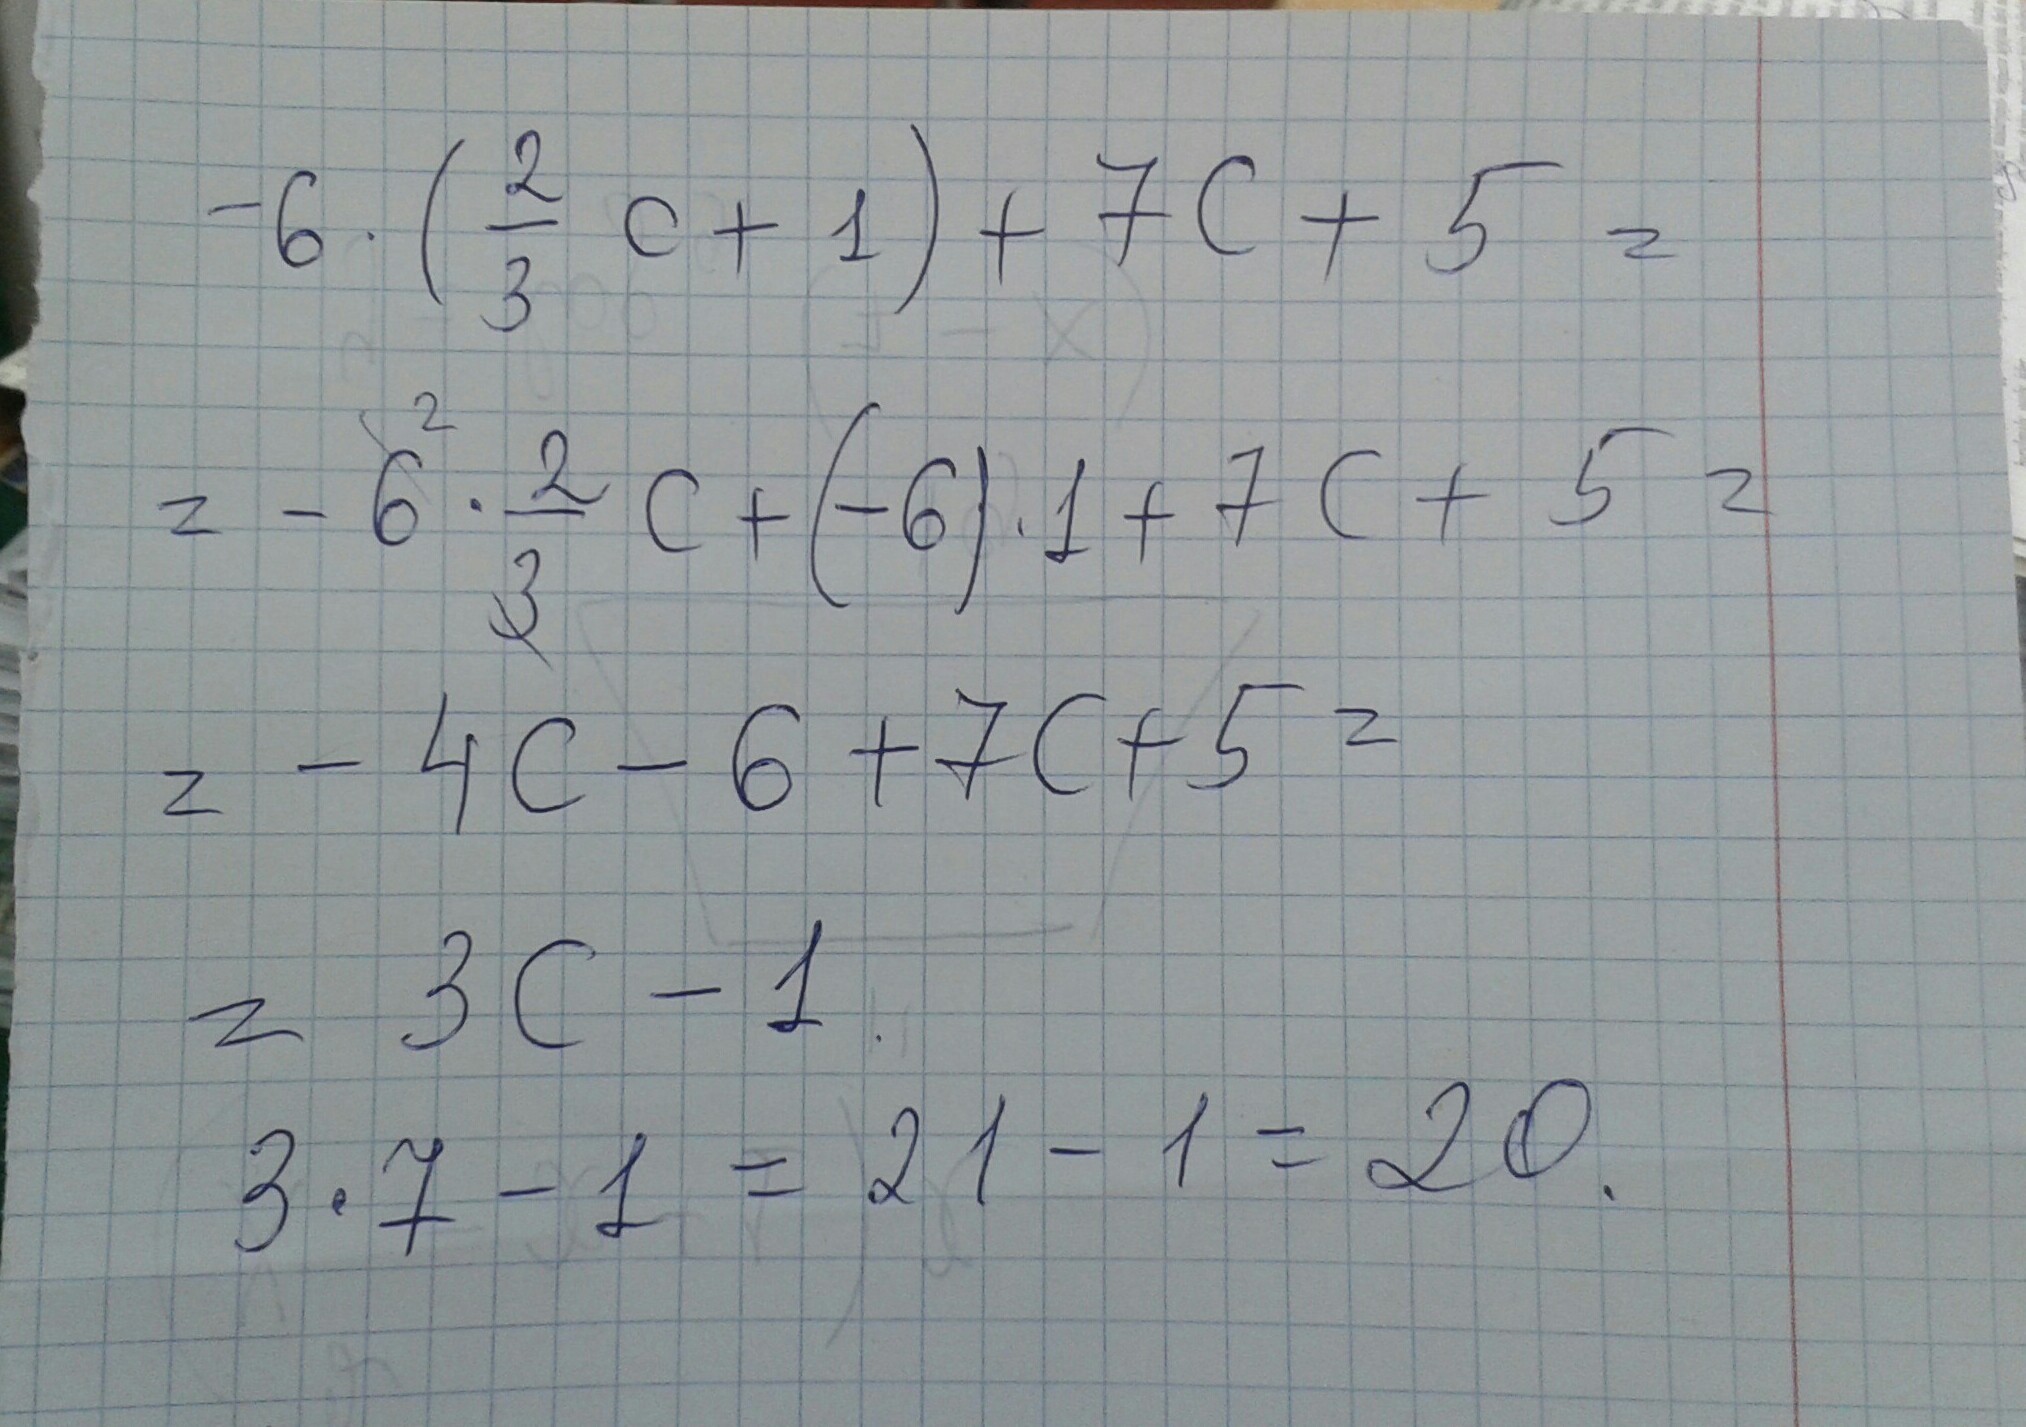 -6·(2/3 c + 1) + 7C + 5 =
= - 6² · 2/3 C + (-6)·1 + 7C + 5 =
= - 4C - 6 + 7C + 5 =
= 3C - 1.
3·7 - 1 = 21 - 1 = 20.